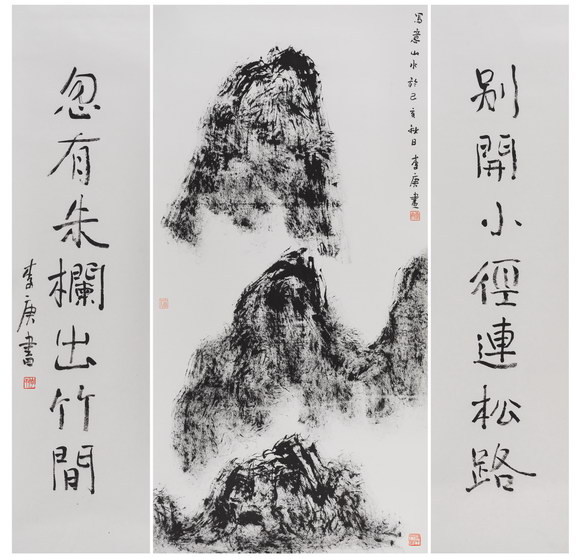 別開小徑連松路
寫意山水於己亥秋日李庚畫
忽有朱欄出竹間
李庚書